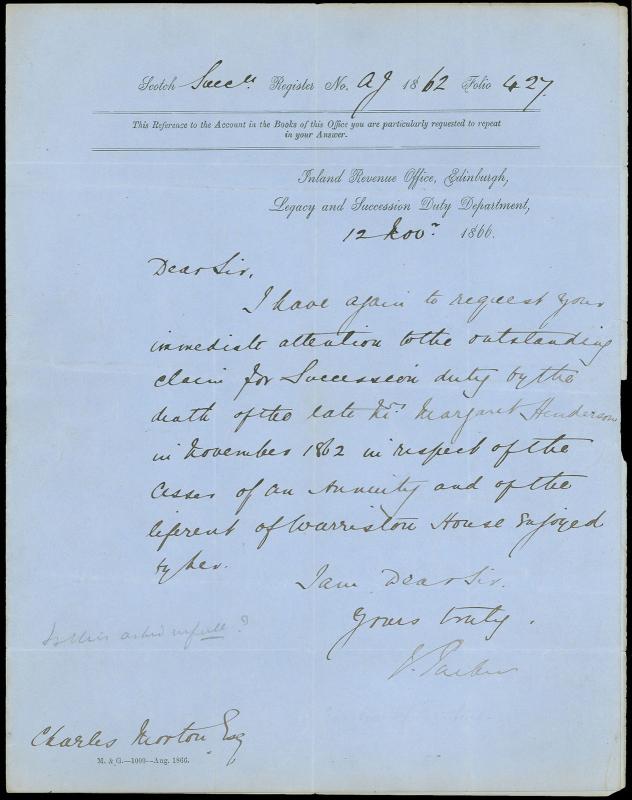 Scotch Succn Register No. AJ 1862 Folio 427.
This Reference to the Account in the Books of this Office you are particularly requested to repeat
in your Answer.
Inland Revenue Office, Edinburgh,
Legacy and Succession Duty Department,
12 Novr 1866.
Dear Sir,
I have again to request your
immediate attention to the outstanding
claim for Succession duty by the
death of the late Mrs Margaret Henderson
in November 1862 in respect of the
Cesser of an Annuity and of the
liferent of Warriston House Enjoyed
by her.
I am Dear Sir.
Yours truly.
Is this asked in full?
Charles Morton Esq
M. & G.—1000—Aug. 1866.